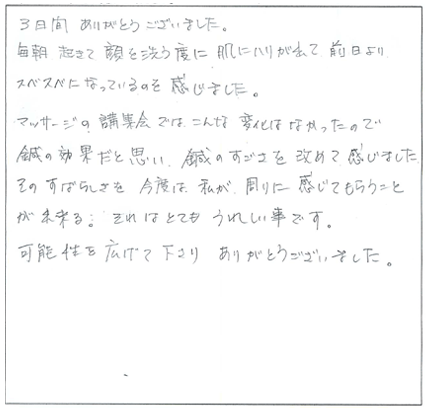 3日間 ありがとうございました。
毎朝 起きて 顔を洗う度に 肌にハリが出て 前日より
スベスベになっているのを 感じました。
マッサージの 講習会では、こんな 変化は なかったので
鍼の効果だと思い、鍼のすごさを 改めて 感じました
そのすばらしさを 今度は 私が 周りに 感じてもらうこと
が 出来る。それはとても うれしい事です。
可能性を 広げて 下さり ありがとうございました。